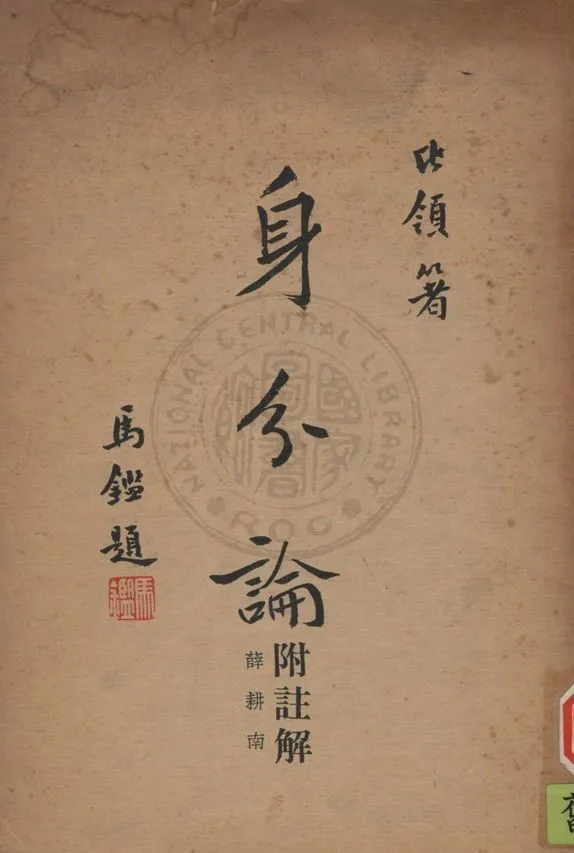 比領箸
身分論
附註解
薛耕南
馬鑑題
馬鑑
NATIONAL CENTRAL LIBRARY
R.O.C
國家圖書館
舊